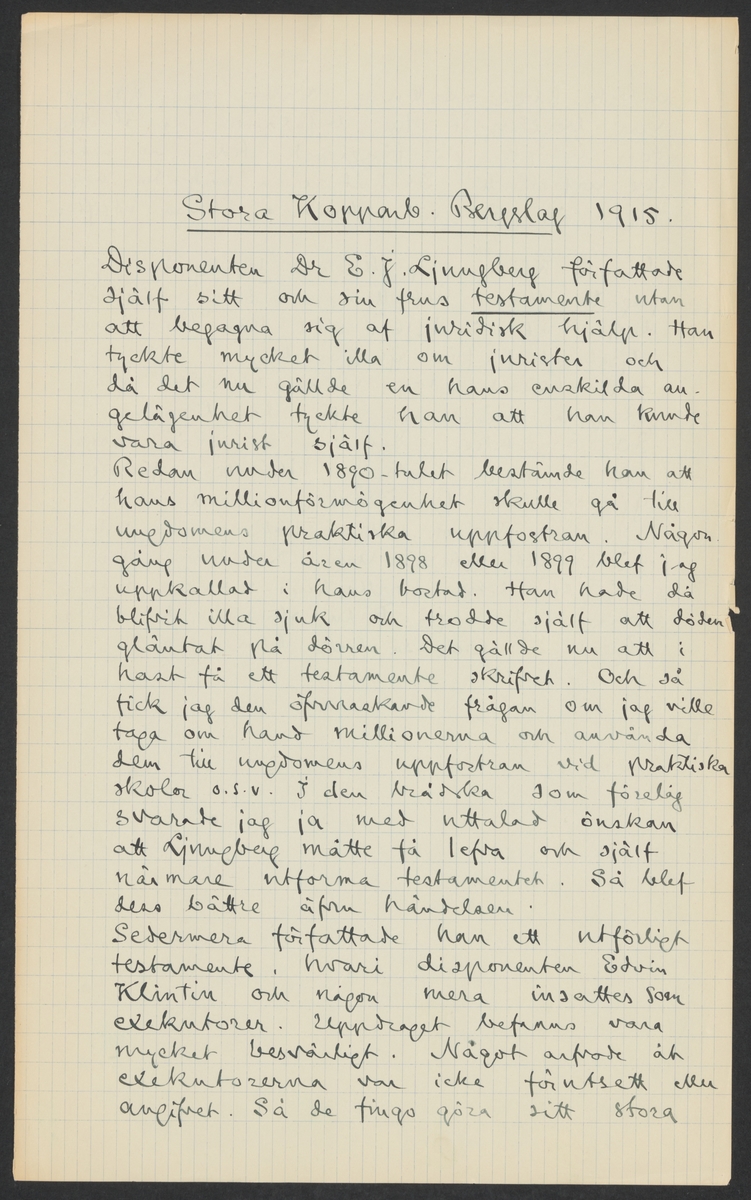 Stora Kopparb. Bergslag 1915.
Disponenten Dr E. J. Ljungberg författade
själf sitt och sin frus testamente utan
att begagna sig af juridisk hjälp. Han
tyckte mycket illa om jurister och
då det nu gällde en hans enskilda an-
gelägenhet tyckte han att han kunde
vara jurist själf.
Redan under 1890-talet bestämde han att
hans millionförmögenhet skulle gå till
ungdomens praktiska uppfostran. Någon
gång under åren 1898 eller 1899 blef jag
uppkallad i hans bostad. Han hade då
blifvit illa sjuk och trodde själf att döden
gläntat på dörren. Det gällde nu att i
hast få ett testamente skrifvet. Och så
fick jag den öfverraskande frågan om jag ville
taga om hand millionerna och använda
dem till ungdomens uppfostran vid praktiska
skolor o.s.v. I den brådska som förelåg
svarade jag ja med uttalad önskan
att Ljungberg måtte få lefva och själf
närmare utforma testamentet. Så blef
dess bättre äfven händelsen.
Sedermera författade han ett utförligt
testamente, hvari disponenten Edvin
Klintin och någon mera insattes som
exekutorer. Uppdraget befanns vara
mycket besvärligt. Något arfvode åt
exekutorerna var icke förutsett eller
angifvet. Så de fingo göra sitt stora